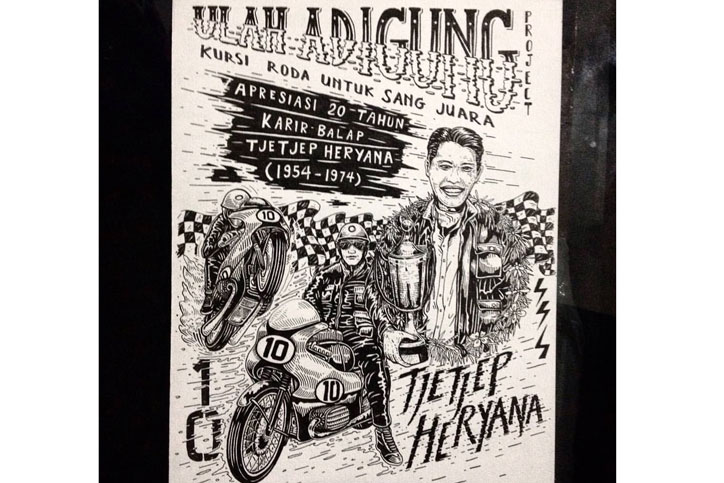 ULAH ADIGUNG
PROJECT
KURSI RODA UNTUK SANG JUARA
APRESIASI 20 TAHUN
KARIR BALAP
TJETJEP HERYANA
(1954-1974)
10
10
10
10
TJETJEP
HERYANA